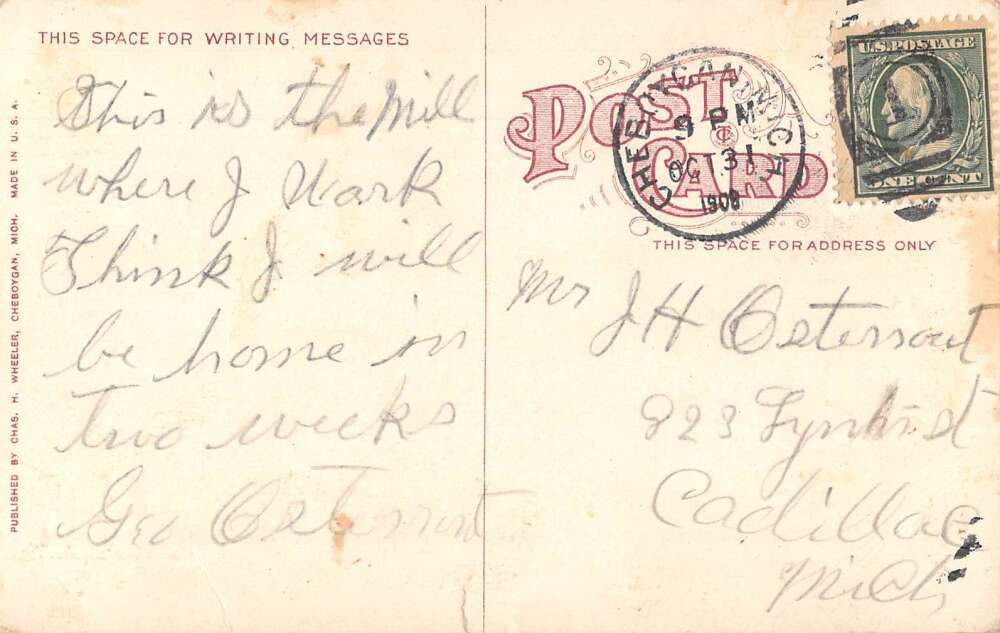 THIS SPACE FOR WRITING MESSAGES
This is the Mill
where I Work
Think I will
be home in
two weeks
Geo Osterrout
PUBLISHED BY CHAS. H. WHEELER, CHEBOYGAN, MICH. MADE IN U. S. A.
POST
CARD
CHEBOYGAN, MICH.
9 PM
OCT 31
1908
U.S. POSTAGE
ONE CENT
1
THIS SPACE FOR ADDRESS ONLY
Mr J H Osterrout
823 st
Cadillac
Mich